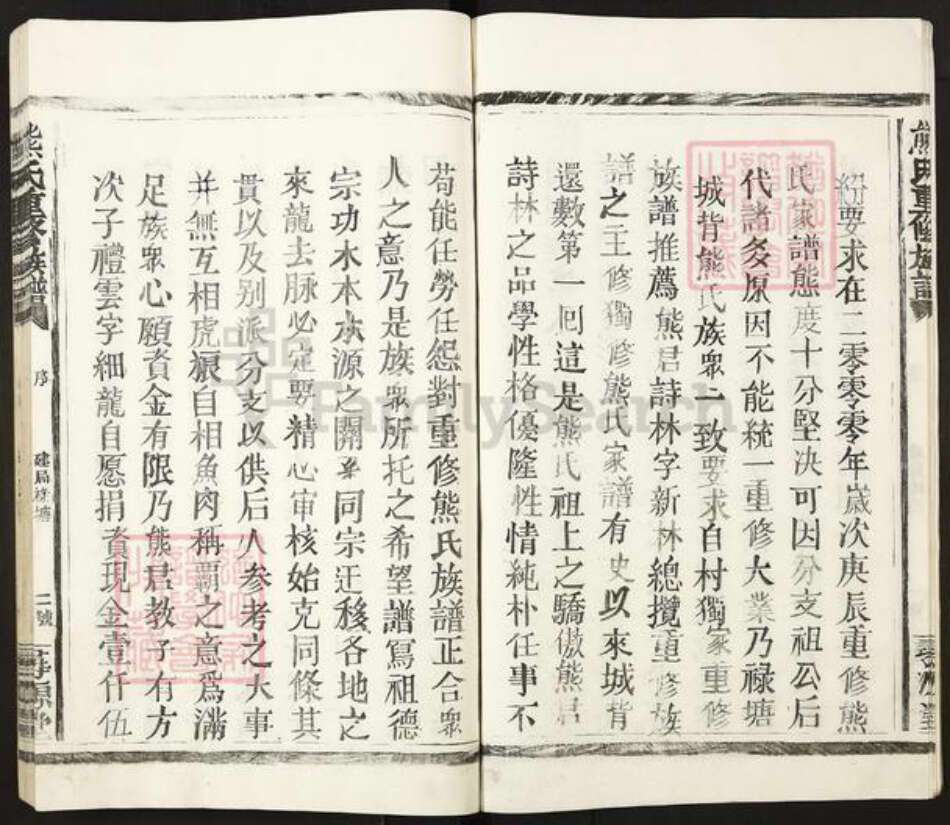 熊氏重修族譜
紛要求在二零零零年歲次庚辰重修熊
氏家譜態度十分堅决可因分支祖公后
代諸多原因不能統一重修大業乃禄塘
城背熊氏族衆一致要求自村獨家重修
族譜推薦熊君詩林字新林總攬重修族
譜之主修獨修熊氏家譜有史以來城背
還數第一囘這是熊氏祖上之驕傲熊君
詩林之品學性格優隆性情純朴任事不
苟能任勞任怨對重修熊氏族譜正合衆
人之意乃是族衆所托之希望譜寫祖德
宗功木本水源之關系同宗迁移各地之
來龍去脉必定要精心审核始克同條其
貫以及别派分支以供后人参考之大事
并無互相虎狼自相魚肉称覇之意爲滿
足族衆心願資金有限乃熊君教子有方
次子禮雲字細龍自愿捐資現金壹仟伍
熊氏重修族譜
序
二號
FamilySearch